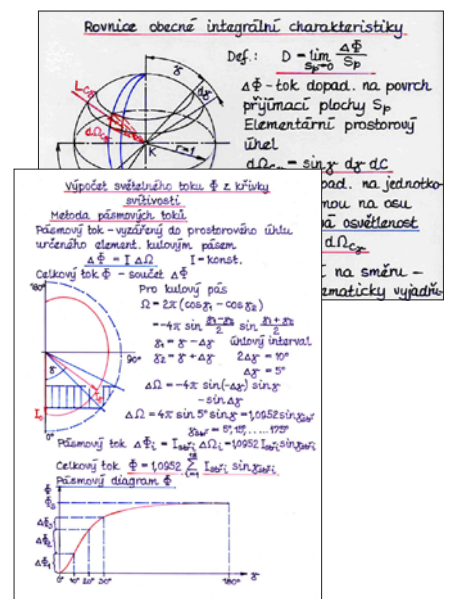 Rovnice obecné integrální charakteristiky
Def.: D = lim ΔΦ/Sp
Sp=0
ΔΦ - tok dopad. na povrch
přijímací plochy Sp
Elementární prostorový
úhel
dΩCγ = sinγ dγ dC
pad. na jednotko-
nou na osu
á osvětlenost
dΩCγ
í na směru -
tematicky vyjádři-
γ
dγ
LCγ
dΩCγ
K
r=1
Výpočet světelného toku Φ z křivky
svítivosti
Metoda pásmových toků
Pásmový tok - vyzářený do prostorového úhlu
určeného element. kulovým pásem
ΔΦ = I ΔΩ I = konst.
Celkový tok Φ - součet ΔΦ
180°
Pro kulový pás
Ω = 2π (cosγ1 - cosγ2)
= -4π sin (γ1-γ2)/2 sin (γ1+γ2)/2
γ1 = γ - Δγ úhlový interval
γ2 = γ + Δγ 2Δγ = 10°
Δγ = 5°
90°
γ
ΔΩ = -4π sin(-Δγ) sinγ
-sinΔγ
ΔΩ = 4π sin 5° sinγ = 1,0952 sinγstř
γstř = 5°, 15°, .... 175°
I0
0°
Pásmový tok ΔΦi = Istři ΔΩi = 1,0952 Istři sinγstři
Celkový tok Φ = 1,0952 18∑i=1 Istři sinγstři
Pásmový diagram Φ
Φ
ΦS
ΔΦ3
ΔΦ2
ΔΦ1
0° 10° 20° 30° 180° γ